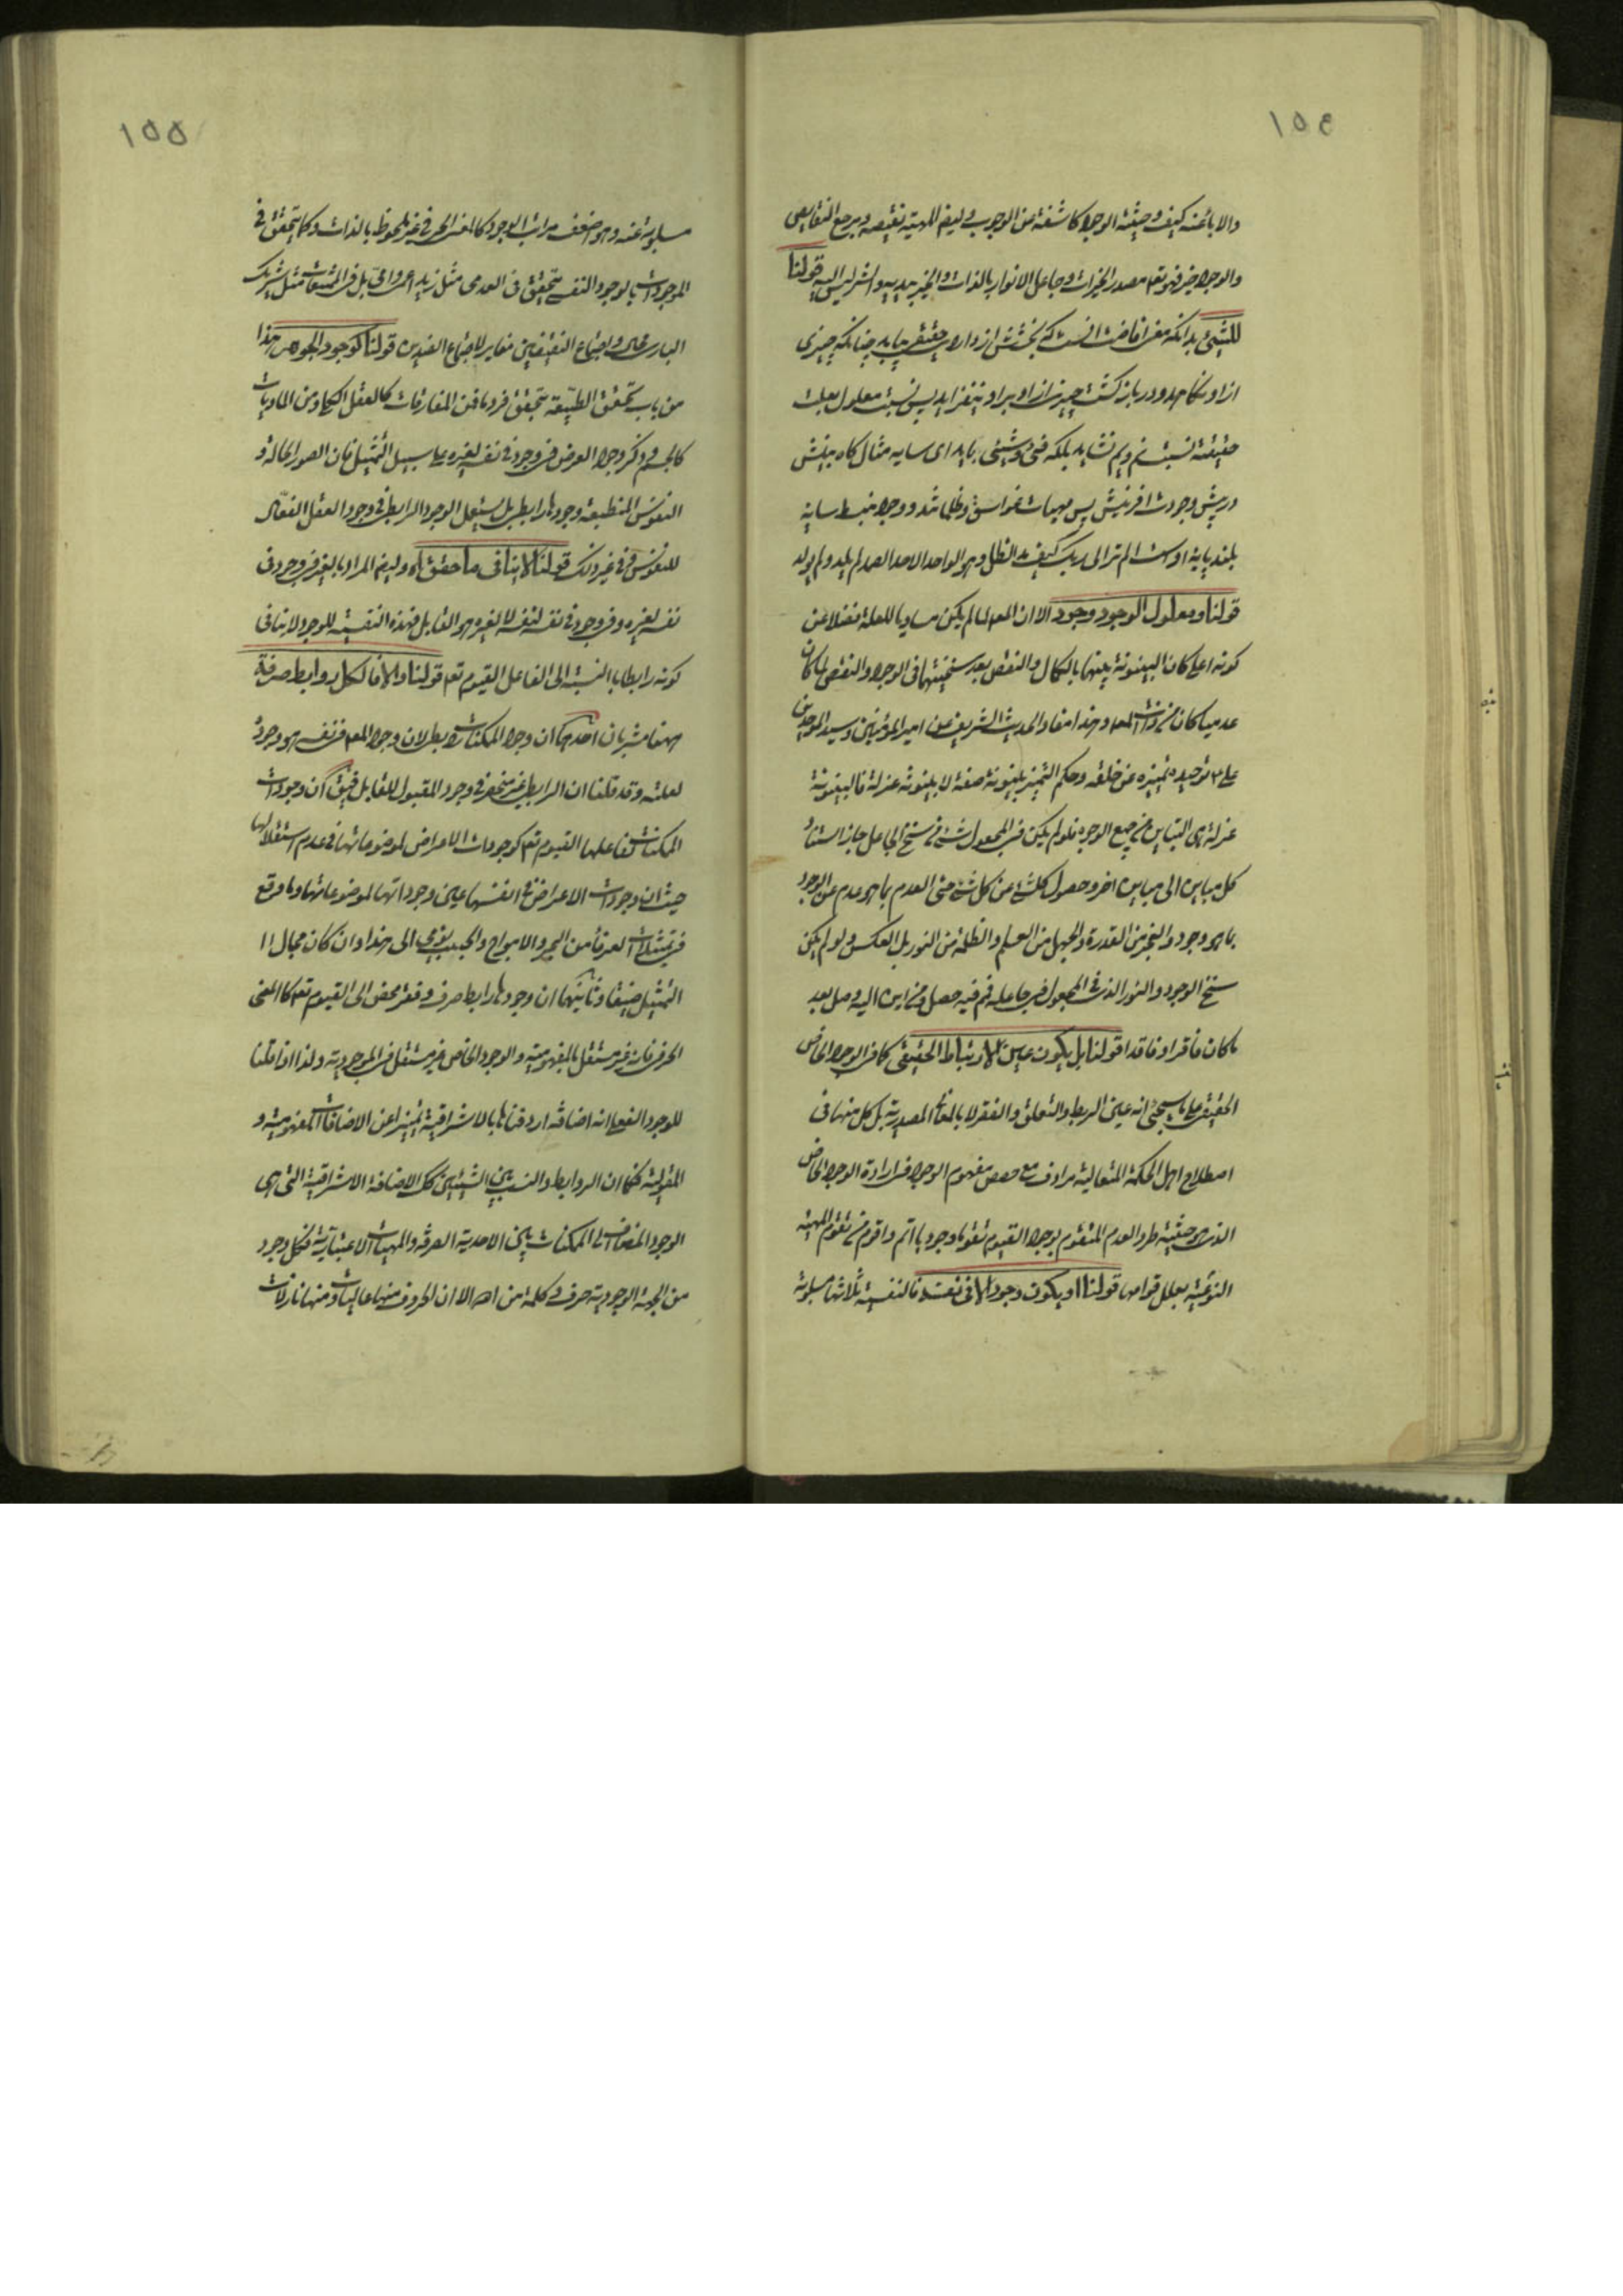 ١٥٤
والاباء عنه كيف وحيثية الوجود كاشفة عن الوجوب وليس للمهية نقيصه ويرجع النقايص
والوجود خير فهو تعالى مصدر الخيرات وجاعل الانوار بالذات والخير بيديه والشر ليس اليه قولنا
للشيء بدانكه معنى افاضت انست كه
از او بكاهد ودر بازكشت چيزى از او بر او نيفزايد پس نسبت معلول بعلت
حقيقيه نسبت نم ويم نشايد بلكه فىء وشىء بايد اى سايه مثال كاه بينش
در پيش وجودت افرينش پس مهيات غواسق وظلمانند ووجود منبسط سايه
بلند پايه اوست الم تر الى ربك كيف مد الظل وهو الواحد الاحد الصمد لم يلد ولم يولد
قولنا ومعلول الوجود وجود الا ان المعلول لما لم يكن مساويا للعلة فضلا عن
كونه اعلى كان البينونة بينهما بالكمال والنقص بعد سنخيتهما فى الوجود والنقص لما كان
عدميا كان من ذات المعلول وهذا مفاد الحديث الشريف عن امير المؤمنين وسيد الموحدين
على ع توحيده تمييزه عن خلقه وحكم التمييز بينونة صفة لا بينونة عزلة فالبينونة
عزلة هى التباين من جميع الوجوه فلو لم يكن فى المجعول شىء من سنخ الجاعل جاز استناد
كل مباين الى مباين اخر وحصول كل شىء عن كل شىء حتى العدم بما هو عدم عن الوجود
بما هو وجود والعجز من القدرة والجهل من العلم والظلمة من النور بل العكس ولو لم يكن
سنخ الوجود والنور الذى فى المجعول فى جاعله فمم فيه حصل ومن اين اليه وصل بعد
ما كان فاقرا وفاقدا قولنا بل يكون عين الارتباط الحقيقى كما فى الوجود الخاص
الحقيقى على ما سيجىء انه عين الربط والتعلق والفقر لا بالمعانى المصدرية بل كل منها فى
اصطلاح اهل الحكمة المتعالية مرادف مع حصص مفهوم الوجود فى ارادة الوجود الخاص
الذى هو حيثية طرد العدم المتقوم بوجود القيوم تقوما وجوديا اتم واقوم من تقوم المهية
النوعية بعلل قوامها قولنا او يكون وجودا لا فى نفسه فالنفسية ثلاثتها مسلوبة
١٥٥
مسلوبة عنه وهو اضعف مراتب الوجود كالمعنى الحرفى غير ملحوظ بالذات وكما يتحقق فى
الموجودات بالوجود النفسى يتحقق فى العدمى مثل زيد اعمى او امى بل فى الممتنعات مثل شريك
البارى محال واجتماع النقيضين مغاير لاجتماع الضدين قولنا كوجود الجوهر هذا
من باب تحقق الطبيعة بتحقق فرد ما فمن المفارقات كالعقل الكلى ومن الماديات
كالجسم وذكر وجود العرض فى وجود فى نفسه لغيره على سبيل التمثيل فان الصور الحالة و
النفوس المنطبعة وجودها رابطى بل يستعمل الوجود الرابطى فى وجود العقل الفعال
للنفوس وفى غير ذلك قولنا لا ينافى ما حقق اه وليس المراد بالغير فى وجود فى
نفسه لغيره وفى وجود فى نفسه لنفسه لا لغيره هو القابل فهذه النفسية للوجود لا ينافى
كونه رابطا بالنسبة الى الفاعل القيوم تعالى قولنا والا فالكل روابط صرفة
ههنا مشربان احدهما ان وجود الممكنات رابطى لان وجود المعلول فى نفسه هو وجوده
لعلته وقد قلنا ان الرابطى غير منحصر فى وجود المقبول للقابل فيق ان وجودات
الممكنات لفاعلها القيوم تعالى كوجودات الاعراض لموضوعاتها فى عدم استقلالها
حيث ان وجودات الاعراض فى انفسها عين وجوداتها لموضوعاتها وما وقع
فى تمثيلات العرفاء من البحر والامواج والحبب يومى الى هذا وان كان مجال
التمثيل ضيقا وثانيهما ان وجودها رابط صرف وفقر محض الى القيوم تعالى كالمعنى
الحرفى فانه غير مستقل بالمفهومية والوجود الخاص غير مستقل فى الموجودية ولذا اذا قلنا
للوجود الفعلى انه اضافة اردفناها بالاشراقية تمييزا عن الاضافات المفهومية و
المقولية فكما ان الروابط والنسب بين الشيئين كك الاضافة الاشراقية التى هى
الوجود المضاف الى الممكنات بين الاحدية الصرفة والمهيات الاعتبارية فكل وجود
من الجهة الوجودية حرف وكلمة من الله الا ان الحروف منها عاليات ومنها نازلات